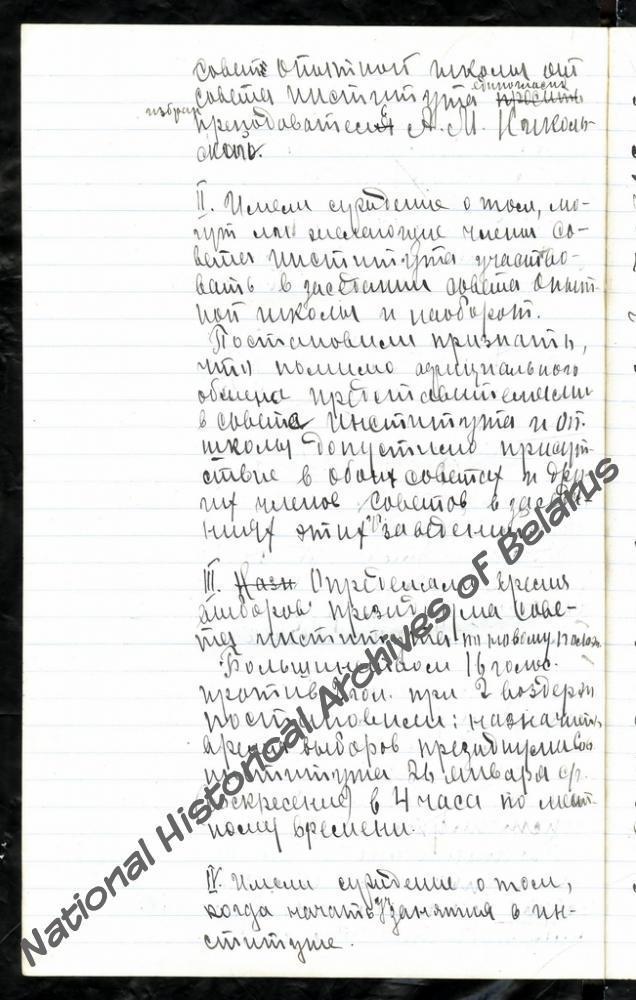 совет опытной школы от
совета института единогласно просить
избран преподавателя А. М. Николь-
ского.
II. Имели суждение о том, мо-
гут ли желающие члены со-
вета института участво-
вать в заседании совета опыт-
ной школы и наоборот.
Постановили признать,
что помимо официального
обмена представителями
в совета института и оп.
школы допустимо присут-
ствие в обоих советах и дру-
гих членов советов в заседа-
ниях этих заведений.
III. Назн Определяли время
выборов президиума сове-
та института по новому полож.
Большинством 16 голос.
против гол. при 2 воздерж
постановили: назначить
время выборов президиума Сов
института 26 января ср.
воскресение) в 4 часа по мест-
ному времени.
IV. Имели суждение о том,
когда начать занятия в ин-
ституте.
National Historical Archives of Belarus